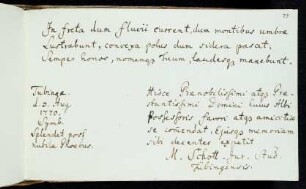 In freta dum fluvii current, dum montibus umbrae
Lustrabunt, convexa polus dum sidera pascet,
Semper honos, nomenq3 tuum, laudesq3 manebunt.
Tubingae
d. 2. Aug.
1770.
Symb.
Splendet post
nubila Phoebus.
Hisce Praenobilissimi atq3 Prae-
stantissimi Domini hujus Albi
Possessoris favori atq3 amicitiae
se comendat, Ejusq3 memoriam
sibi decenter expetit
M. Schott. Jur. Aud.
Tubingensis.